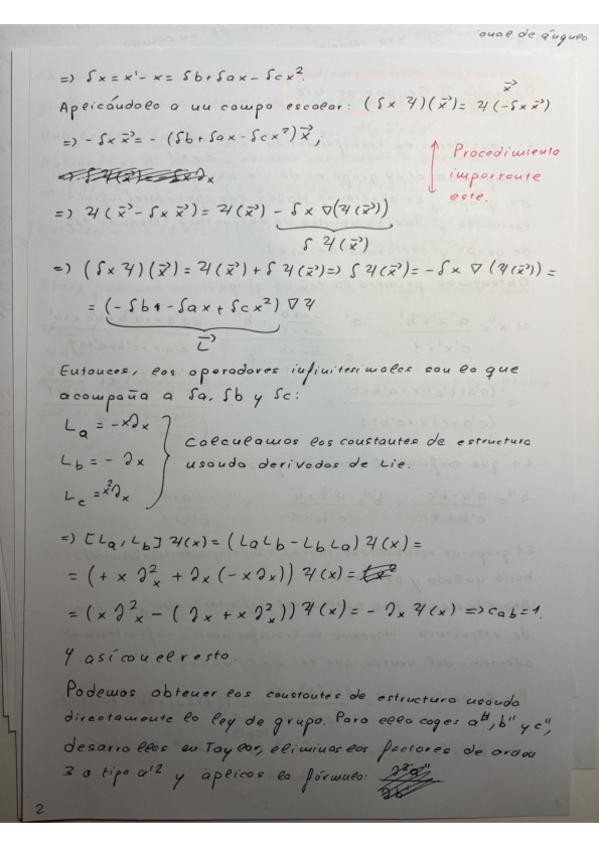 ional de ángulo
=> δx = x' - x = δb + δax - δcx².
Aplicándolo a un campo escalar: (δx Ψ)(x⃗) = Ψ(-δx x⃗)
x⃗
=> -δx x⃗ = - (δb + δax - δcx²) x⃗ ;
Procedimiento
importante
este.
=> Ψ(x⃗ - δx x⃗) = Ψ(x⃗) - δx ∇(Ψ(x⃗))
δ Ψ(x⃗)
=> (δx Ψ)(x⃗) = Ψ(x⃗) + δ Ψ(x⃗) => δ Ψ(x⃗) = -δx ∇ (Ψ(x⃗)) =
= (-δb - δax + δcx²) ∇ Ψ
L⃗
Entonces, los operadores infinitesimales son lo que
acompaña a δa, δb y δc:
La = -x∂x
Lb = - ∂x
Lc = x²∂x
Calculamos las constantes de estructura
usando derivadas de Lie.
=> [La, Lb] Ψ(x) = (LaLb - LbLa) Ψ(x) =
= (+ x ∂²x + ∂x (-x∂x)) Ψ(x) =
= (x ∂²x - (∂x + x ∂²x)) Ψ(x) = - ∂x Ψ(x) => cab = 1.
Y así con el resto.
Podemos obtener las constantes de estructura usando
directamente la ley de grupo. Para ello coges a'', b'' y c'',
desarrollas en Taylor, eliminas los factores de orden
3 o tipo a'² y aplicas la fórmula:
2